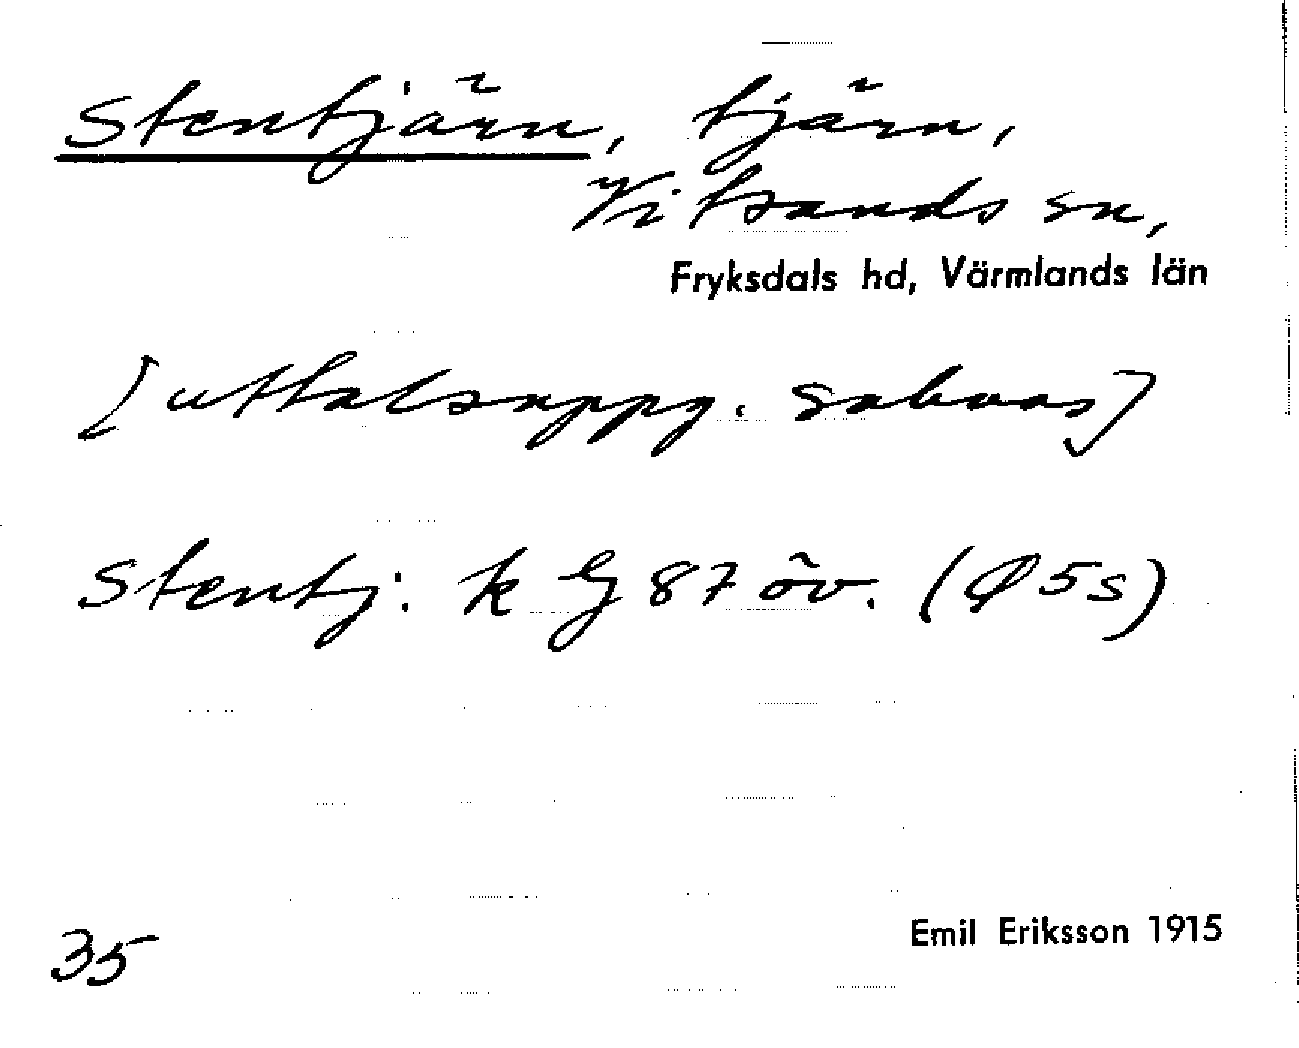 Stentjärn, tjärn,
Vitsands sn,
Fryksdals hd, Värmlands län
[uttalsuppg. saknas]
Stentj. k G 87 öv. (Ø 5 s)
Emil Eriksson 1915
35